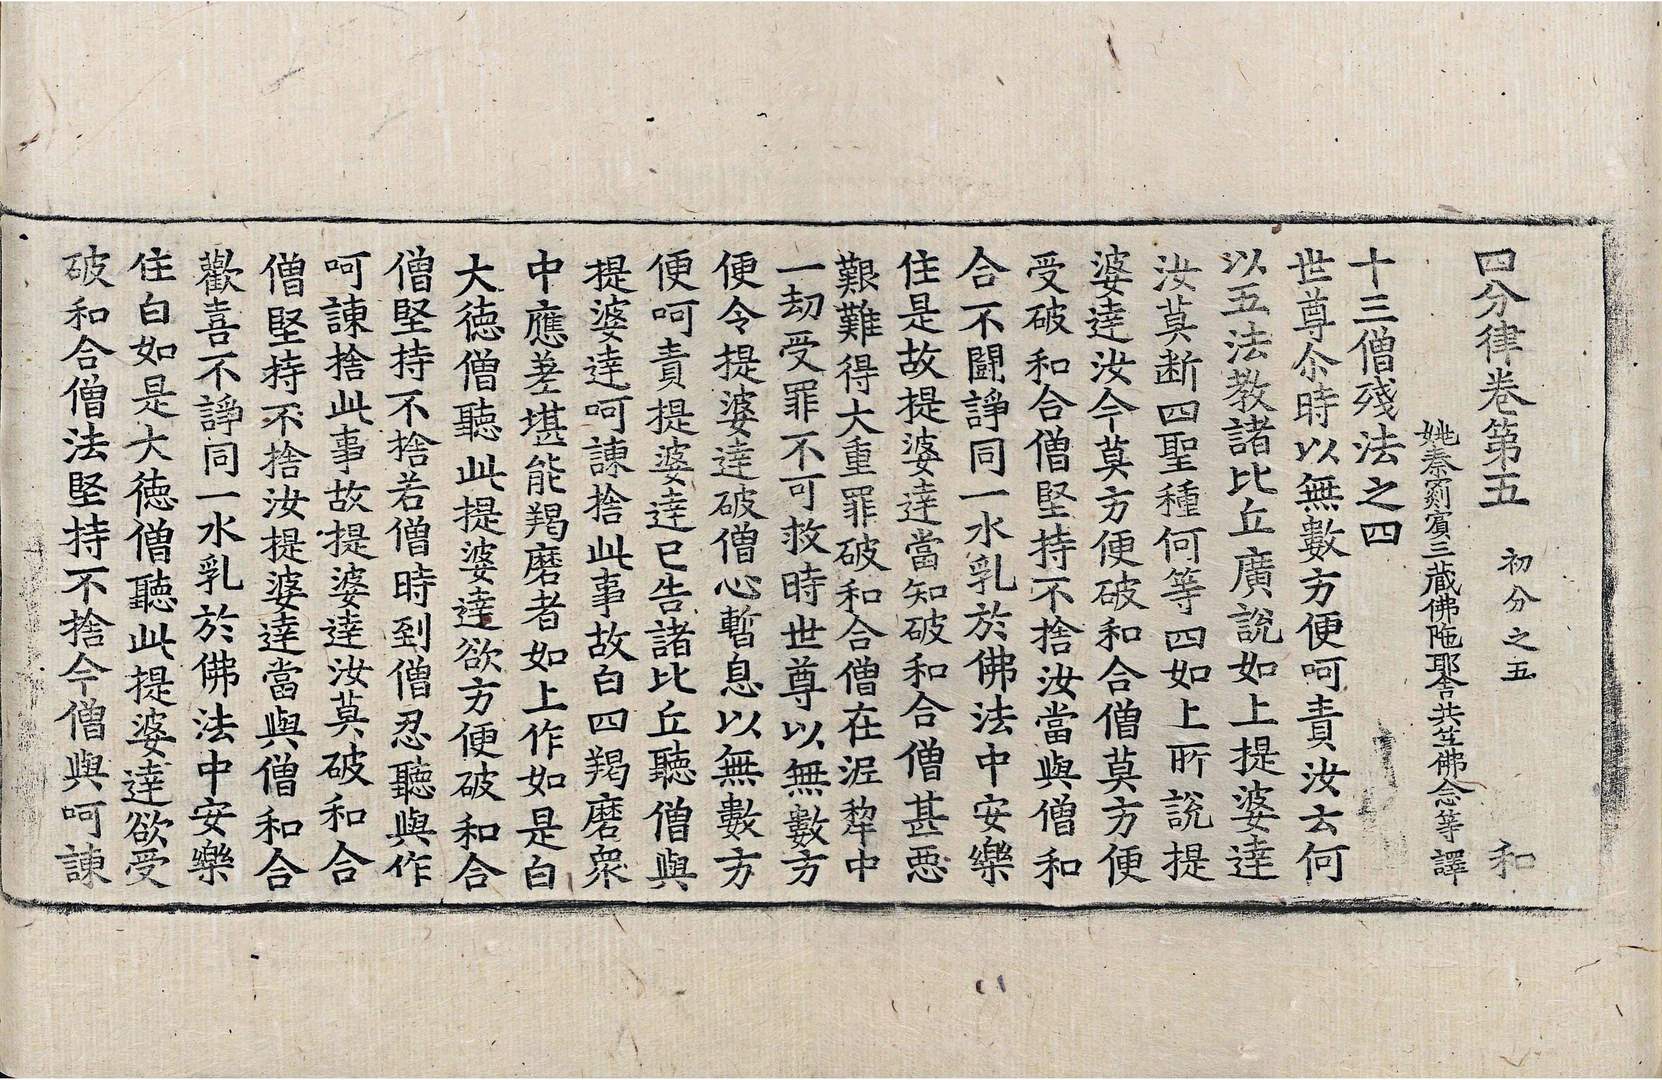 四分律卷第五 初分之五 和
姚秦罽賓三藏佛陁耶舍共竺佛念等譯
十三僧殘法之四
世尊尒時以無數方便呵責汝云何
以五法教諸比丘廣說如上提婆達
汝莫断四聖種何等四如上所說提
婆達汝今莫方便破和合僧莫方便
受破和合僧堅持不捨汝當與僧和
合不鬪諍同一水乳於佛法中安樂
住是故提婆達當知破和合僧甚惡
艱難得大重罪破和合僧在泥犂中
一劫受罪不可救時世尊以無數方
便令提婆達破僧心暫息以無數方
便呵責提婆達已告諸比丘聽僧與
提婆達呵諫捨此事故白四羯磨衆
中應差堪能羯磨者如上作如是白
大徳僧聽此提婆達欲方便破和合
僧堅持不捨若僧時到僧忍聽與作
呵諫捨此事故提婆達汝莫破和合
僧堅持不捨汝提婆達當與僧和合
歡喜不諍同一水乳於佛法中安樂
住白如是大徳僧聽此提婆達欲受
破和合僧法堅持不捨今僧與呵諫